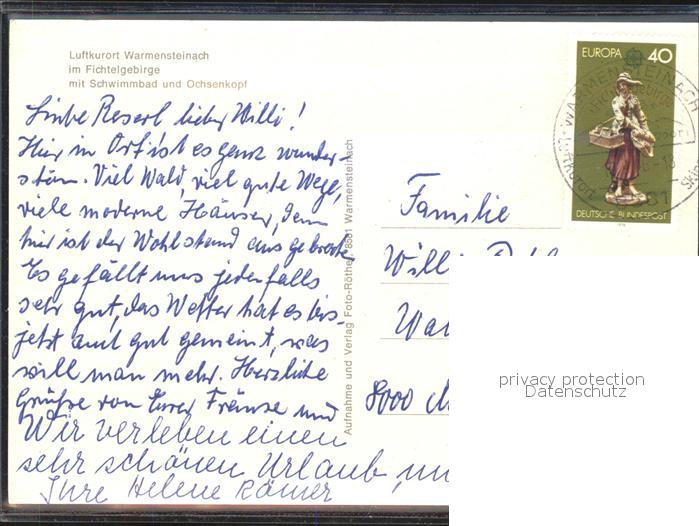 Luftkurort Warmensteinach
im Fichtelgebirge
mit Schwimmbad und Ochsenkopf
Liebe Reserl lieber Willi!
Hier in Ort ist es ganz wunder-
schön. Viel Wald, viel gute Wege,
viele moderne Häuser, denn
hier ist der Wohlstand ausgebrochen.
Es gefällt uns jedenfalls
sehr gut, das Wetter hat es bis
jetzt auch gut gemeint, was
will man mehr. Herzliche
Grüße von Eurer Fränze und
Wir verleben einen
sehr schönen Urlaub,
Ihre Helene Römer
Aufnahme und Verlag Foto-Röthel, 8581 Warmensteinach
EUROPA 40
DEUTSCHE BUNDESPOST
WARMENSTEINACH
Luftkurort
Familie
Willi
8000
privacy protection
Datenschutz